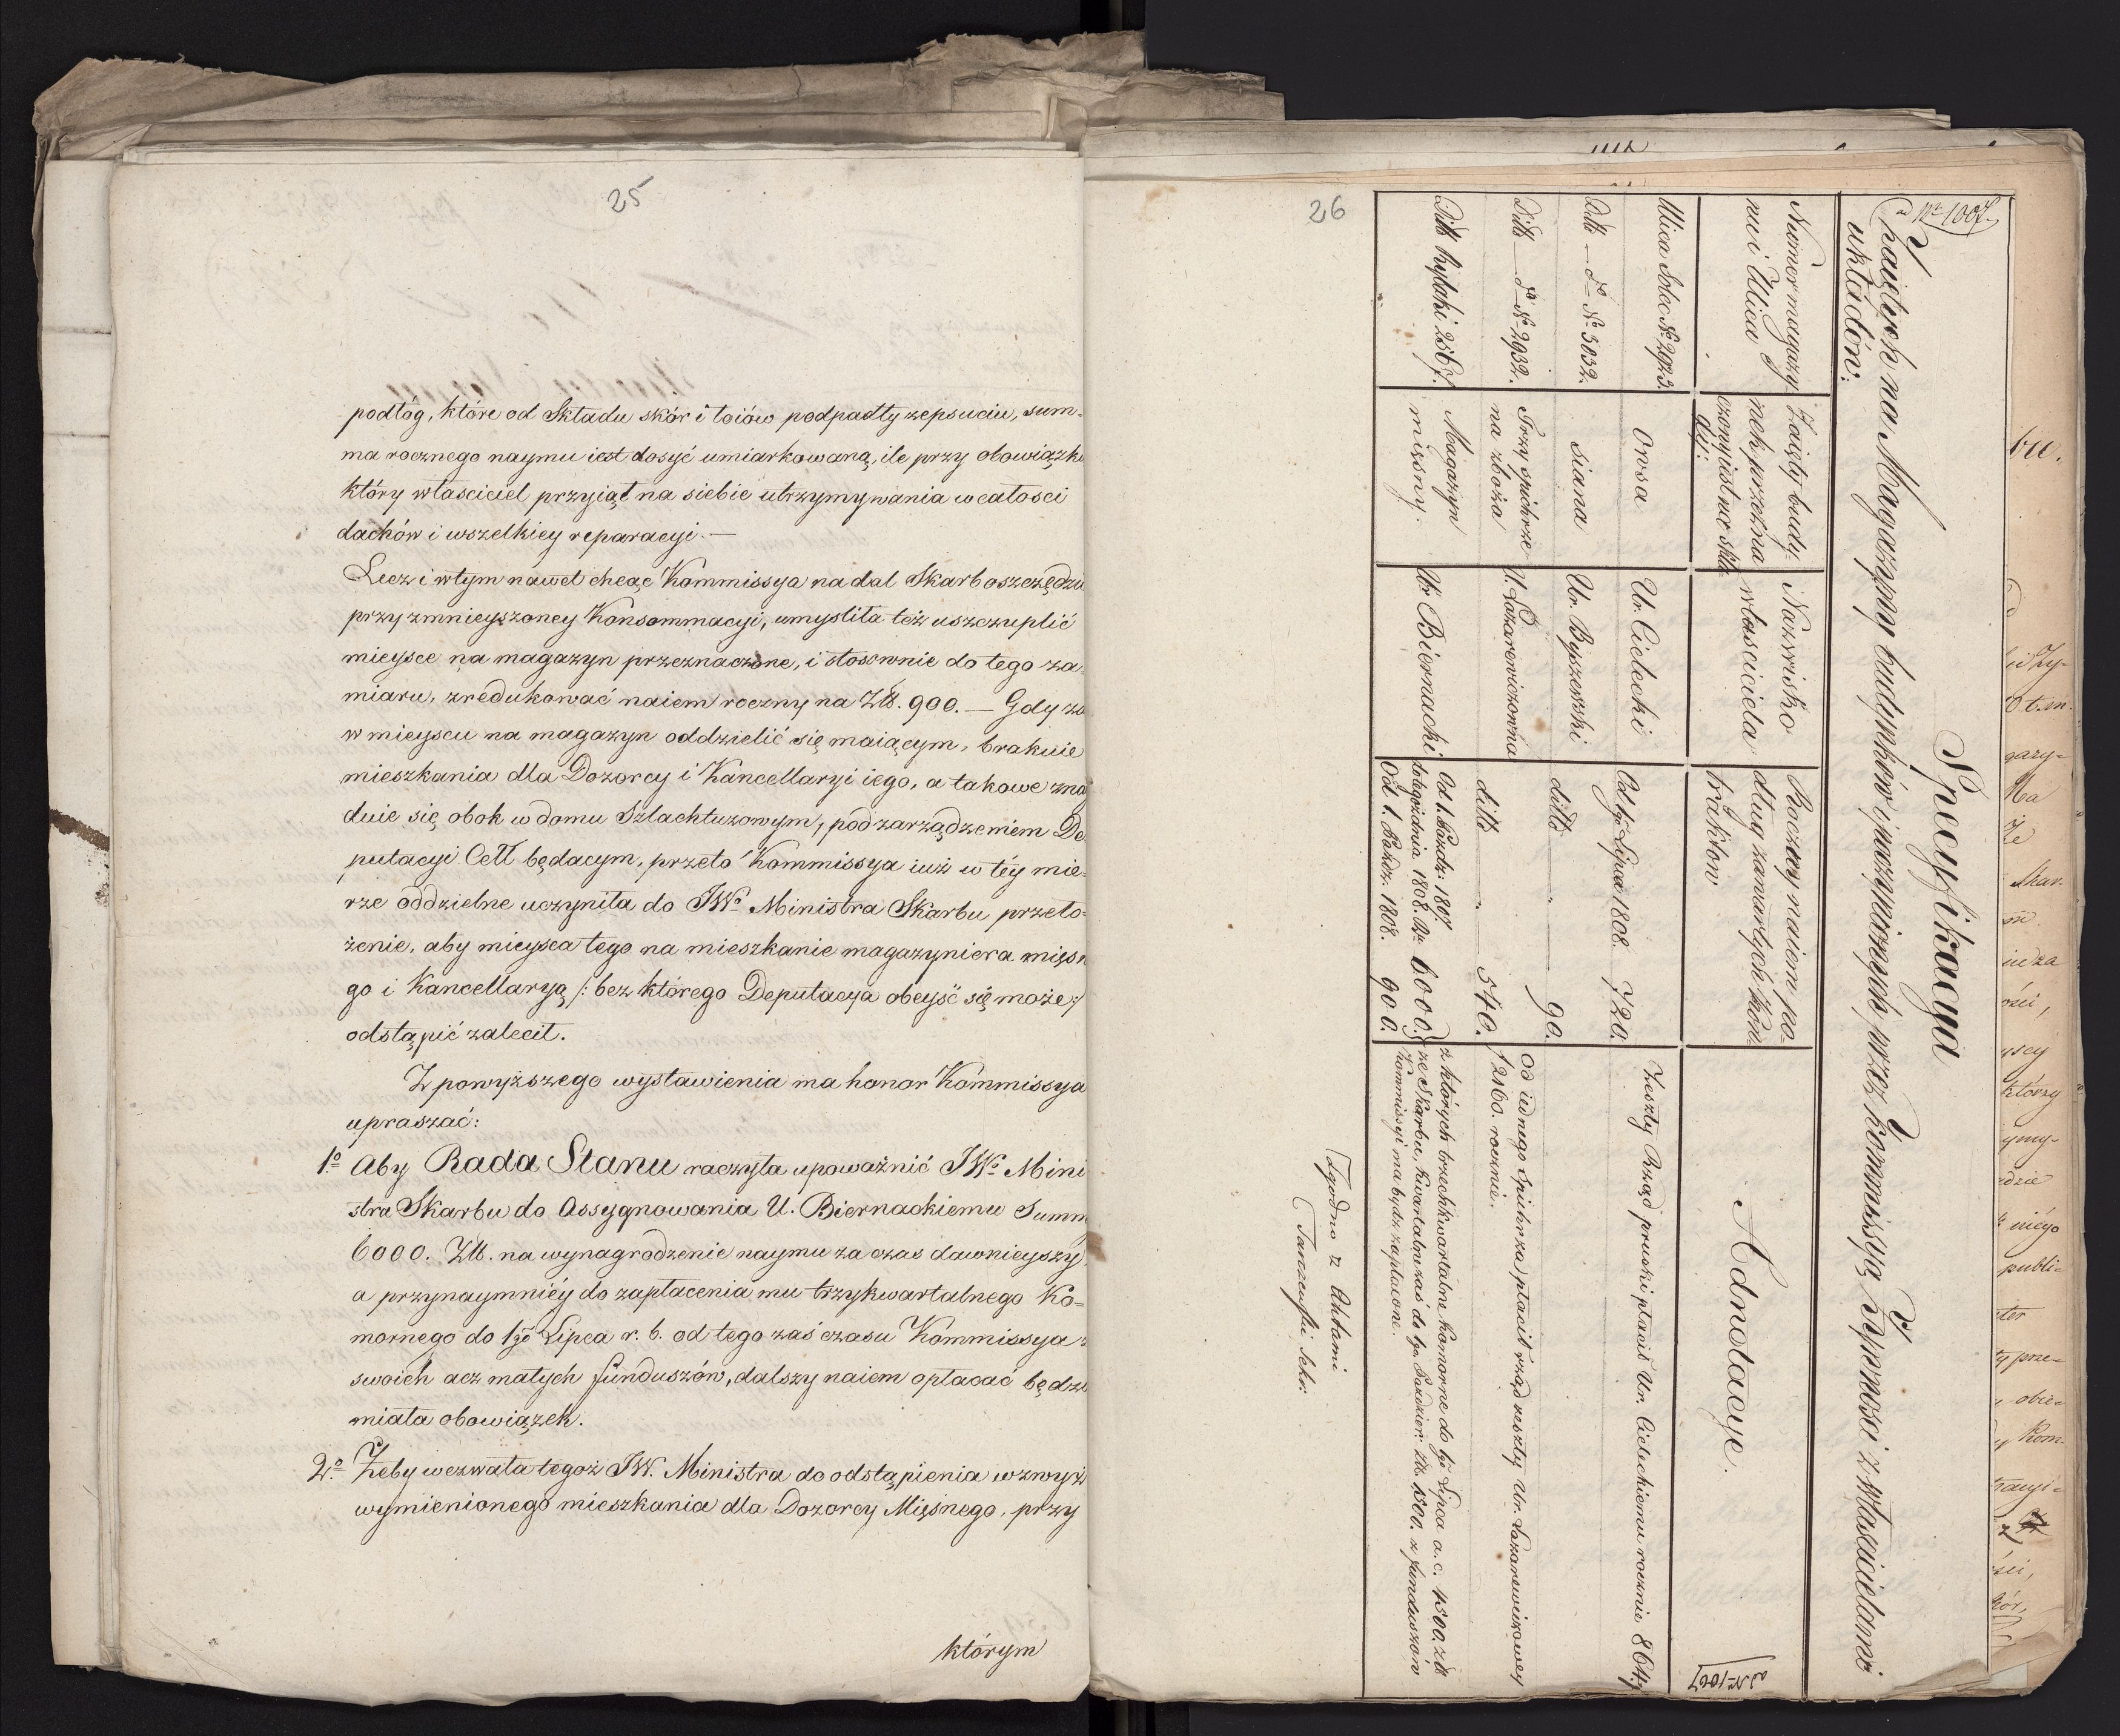 25
podłóg, które od Składu skór i łoiów podpadły zepsuciu, sum-
ma rocznego naymu iest dosyć umiarkowaną, ile przy obowiązku
który własciciel przyiął na siebie utrzymywania w całosci
dachów i wszelkiey reparacyi. —
Lecz i w tym nawet chcąc Kommissya nadal Skarb oszczędzi
przy zmnieyszoney Konsommacyi, umyslila też uszczuplić
mieysce na magazyn przeznaczone, i stosownie do tego za-
miaru, zredukować naiem roczny na Złł. 900. — Gdy za
w mieyscu na magazyn oddzielić się maiącym, brakuie
mieszkania dla Dozorcy i Kancellaryi iego, a takowe zna
duie się obok w domu Szlachtuzowym, pod zarządzeniem De
putacyi Cełł będacym, przeto Kommissya iuż w téy mie-
rze oddzielne uczyniła do JWo Ministra Skarbu przeło-
żenie, aby mieysca tego na mieszkanie magazyniera mięsn
go i Kancellaryą /: bez którego Deputacya obeyść się może :/
odstąpić zalecił.
Z powyższego wystawienia ma honor Kommissya
upraszać:
1o Aby Rada Stanu raczyła upoważnić JWo Mini
stra Skarbu do Assygnowania U. Biernackiemu Summ
6000. Złł. na wynagrodzenie naymu za czas dawnieyszy
a przynaymniéy do zapłacenia mu trzykwartalnego Ko-
mornego do 1go Lipca r. b. od tego zaś czasu Kommissya z
swoich acz małych funduszów, dalszy naiem opłacać będzi
miała obowiązek.
2o Żeby wezwała tegoż JW. Ministra do odstąpienia wzwyż
wymienionego mieszkania dla Dozorcy Mięsnego, przy
którym
26
ad No 1007.
Specyfikacya
Zaiętych na Magazyny budynków i poczynionych przez Kommissyą Żywnosci z włascicielami
układów:
Numer magazy-
nu i Ulica
Zaięty budy-
nek przezna
czony iest na skła
dy:
Nazwisko
własciciela
Roczny naiem po-
dług zawartych Kon-
traktów
Adnotacye.
Ulica Solec No 2923.
Owsa
Ur. Cielecki
Od 1go Lipca 1808. 720.
Zeszły Rząd pruski płacił Ur. Cieleckiemu rocznie 864 f
Ditto — do No 3032.
Siana
Ur. Byszewski
ditto 90.
Ditto — do No 2932.
Trzy spichrze
na zboża
U. Łazarewiczowna
ditto 540.
Od iednego Spichrza płacił rząd zeszły Ur. Lazarewiczowey
f 2160. rocznie.
Ditto Rybaki 2567.
Magazyn
mięsny.
Ur. Biernacki
Od 1. Pazdz: 1807
do tegoż dnia 1808. 6000.
Od 1. Pazdz. 1808. 900.
z których trzechkwartalne Komorne do 1go Lipca a. c. 4500. złł
ze Skarbu, kwartalne zaś do 1go Pazdzier: Złł. 1500. z funduszów
Kommissyi ma bydz zapłacone.
Zgodno z Aktami
Tarczewski Sekr.
ad No 1007